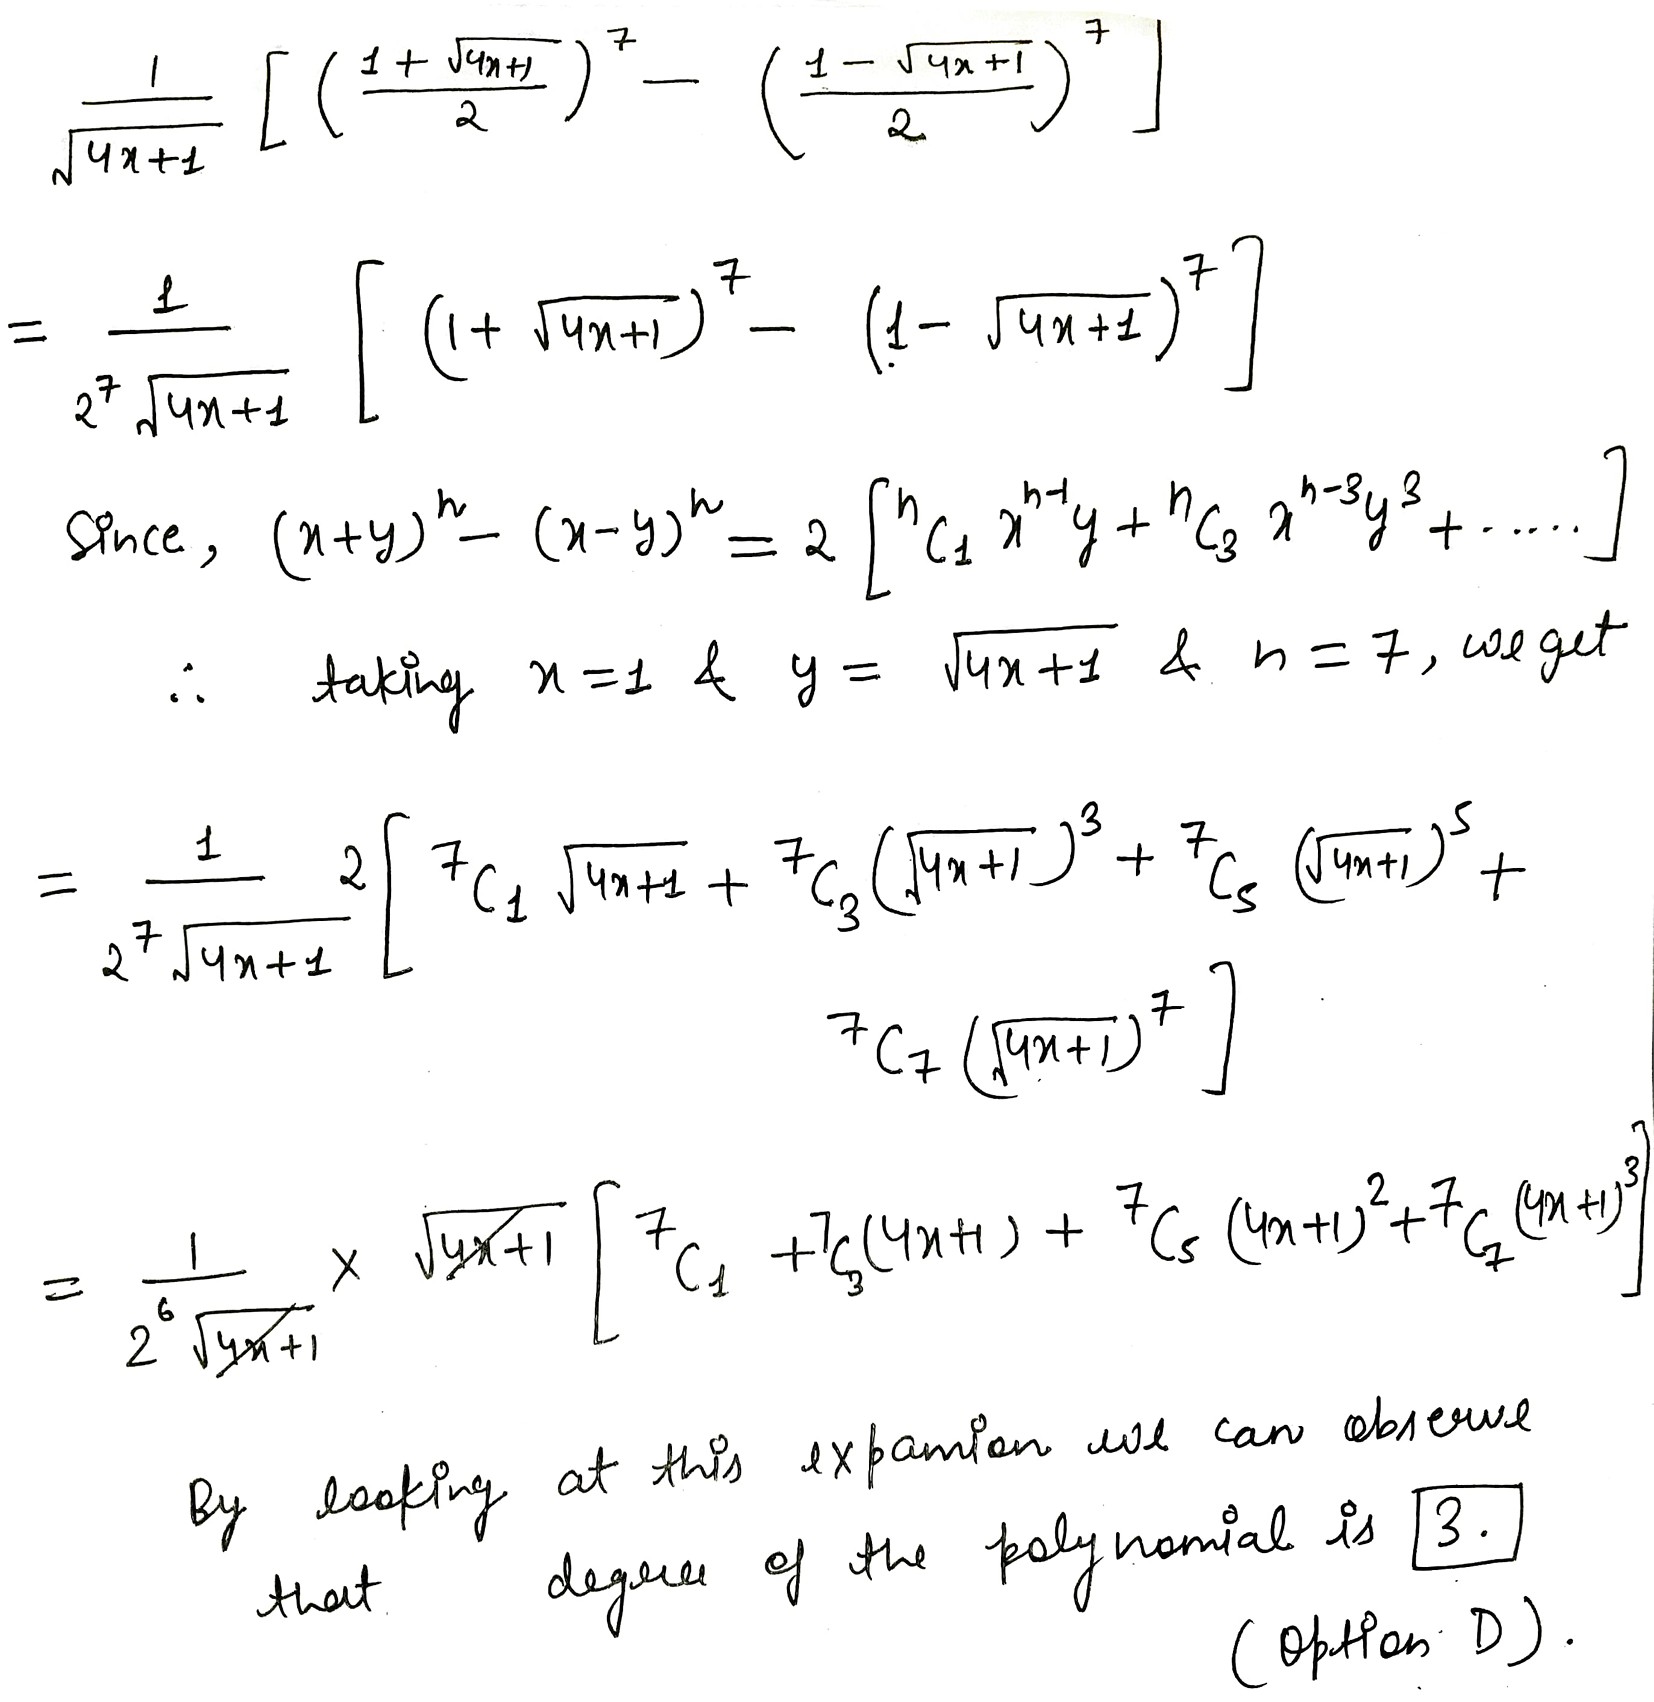 1/√(4x+1) [ ( (1 + √(4x+1))/2 )^7 − ( (1 − √(4x+1))/2 )^7 ]
= 1/(2^7 √(4x+1)) [ (1 + √(4x+1))^7 − (1 − √(4x+1))^7 ]
Since, (x+y)^n − (x−y)^n = 2 [ ^nC_1 x^(n-1) y + ^nC_3 x^(n-3) y^3 + ...... ]
∴ taking x = 1 & y = √(4x+1) & n = 7, we get
= 1/(2^7 √(4x+1)) 2 [ ^7C_1 √(4x+1) + ^7C_3 (√(4x+1))^3 + ^7C_5 (√(4x+1))^5 +
^7C_7 (√(4x+1))^7 ]
= 1/(2^6 √(4x+1)) × √(4x+1) [ ^7C_1 + ^7C_3 (4x+1) + ^7C_5 (4x+1)^2 + ^7C_7 (4x+1)^3 ]
By looking at this expansion we can observe
that degree of the polynomial is 3.
(Option D).